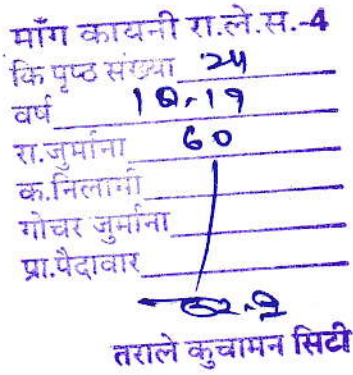 माँग कायनी रा.ले.स.-4
कि पृष्ठ संख्या 24
वर्ष 18-19
रा.जुर्माना 60
क.निलामी
गोचर जुर्माना
प्रा.पैदावार
तराले कुचामन सिटी